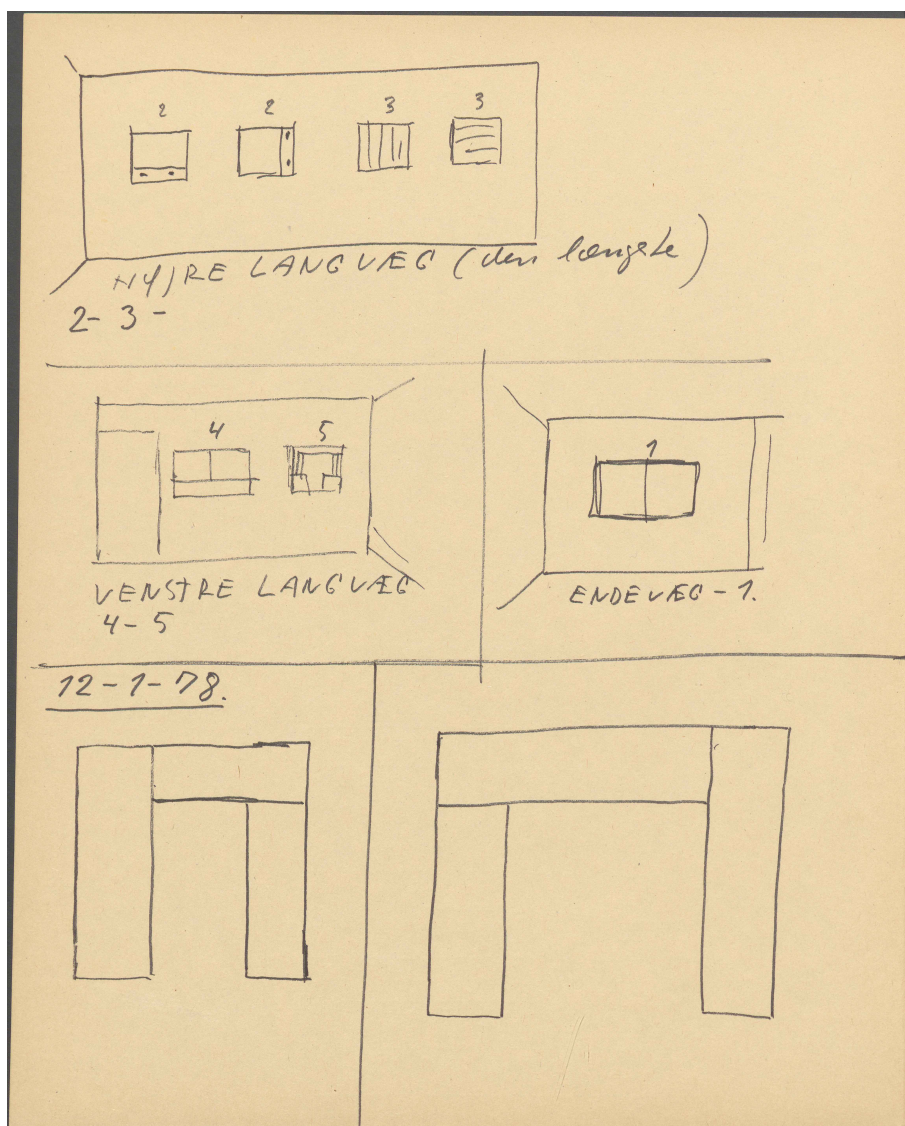 2 2 3 3
HØJRE LANGVÆG (den længste)
2- 3 -
4 5
VENSTRE LANGVÆG
4- 5
1
ENDEVÆG - 1.
12-1-78.